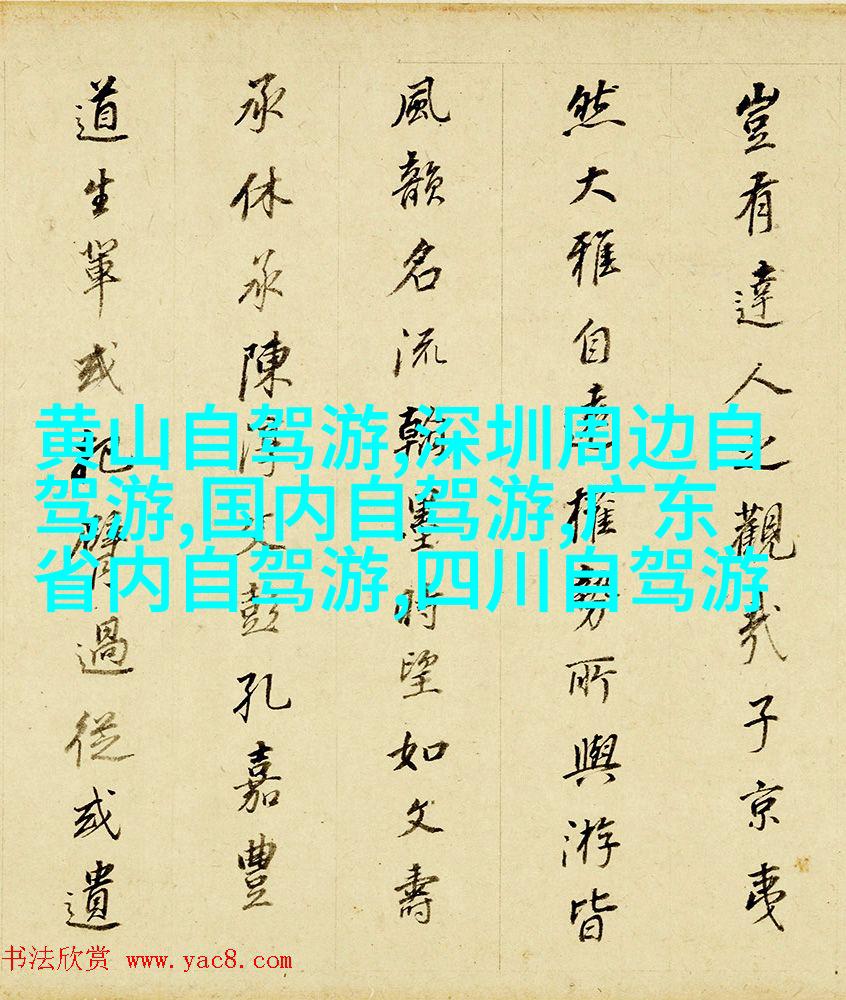 豈有達人之觀哉子京夷
然大雅自權勢所與游皆
風韻名流翰墨時望如文壽
承休承陳淳文彭孔嘉豊
道生輩或臂過從或遺
黄山自驾游,深圳周边自
驾游,国内自驾游,广东
省内自驾游,四川自驾游
书法欣赏 www.yac8.com